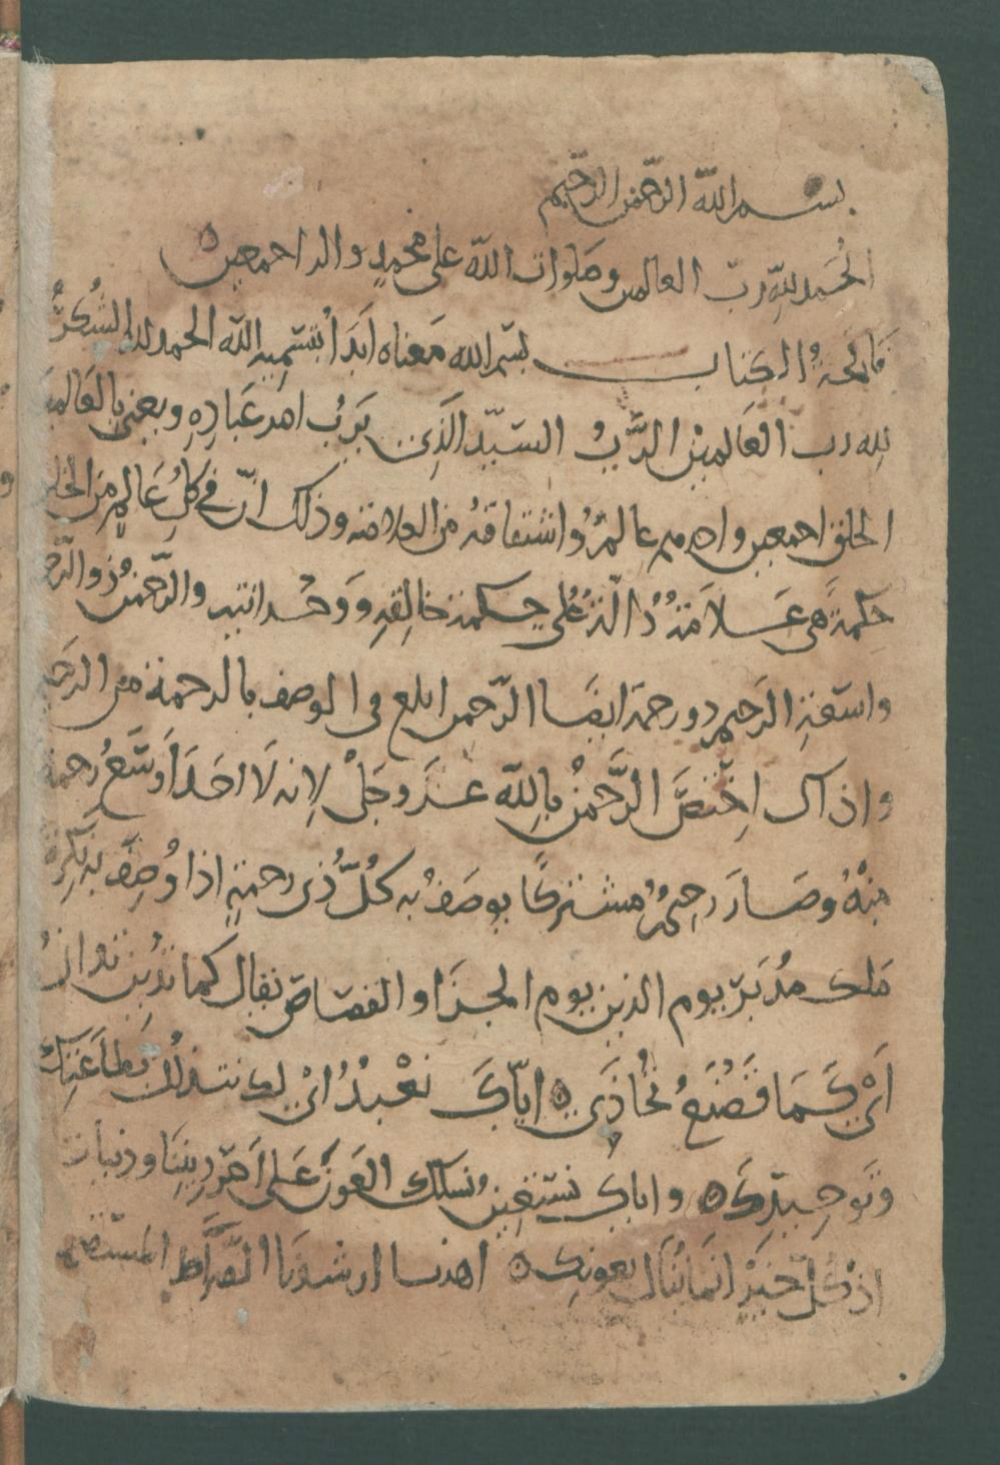 بسم الله الرحمن الرحيم
الحَمد للهِ ربّ العالمين وصَلوات الله على محمدٍ واله اجمعين ه
فاتحةُ الكتاب بسم الله مَعناه اَبدَأُ بتَسمِيةِ الله الحمد لله الشُكرُ
لله رب العَالمينْ الرَّبُّ السَيّد الَذي يَرَبُ امرَ عِبَادِهِ ويعنى بِالعَالمينَ
الخلق اجمعين واحدهم عالَمٌ واشتقاقهُ من العلامة وذلك انّ في كلِ عَالمٍ من الخلق
حِكمةً هي عَلامَةٌ دُالّةٌ على حِكمة خالِقِهِ ووَحْدانيته والرّحمنُ ذو الرّحمة
الرَحيم ذو رحمة ايضا الرّحمن ابلع في الوصف بالرحمة من الرَحيم
واذاك اختَصَّ الرَّحمنُ بِالله عَزَ وجَلْ لانه لَا احَدَ اَوسَعُ رحمة
منْهُ وصَارَ رحيمٌ مشتركًا يوصَفُ به كُلُّ ذي رحمةٍ اذا وُصِفَ به نَكِرةً
مَلك مُدَبّر يوم الدين يوم الجزَا والقصَاص يقال كما تَدين تدان
اَيْ كَمَا تَصْنَعُ تُجاذَي ه ايّاكَ نَعْبُدُ ايْ لك نتذلّل بطاعتك
وتَوحِيدِكَ ه واياك نستَعينُ نسئلك العَونَ على اَمرِ دِينِنَا ودنيانا
اذْ كل خَيرْ انّمَا يُنال بعَونِك ه اهدنا ارشدنا الصِّراط المستقيم